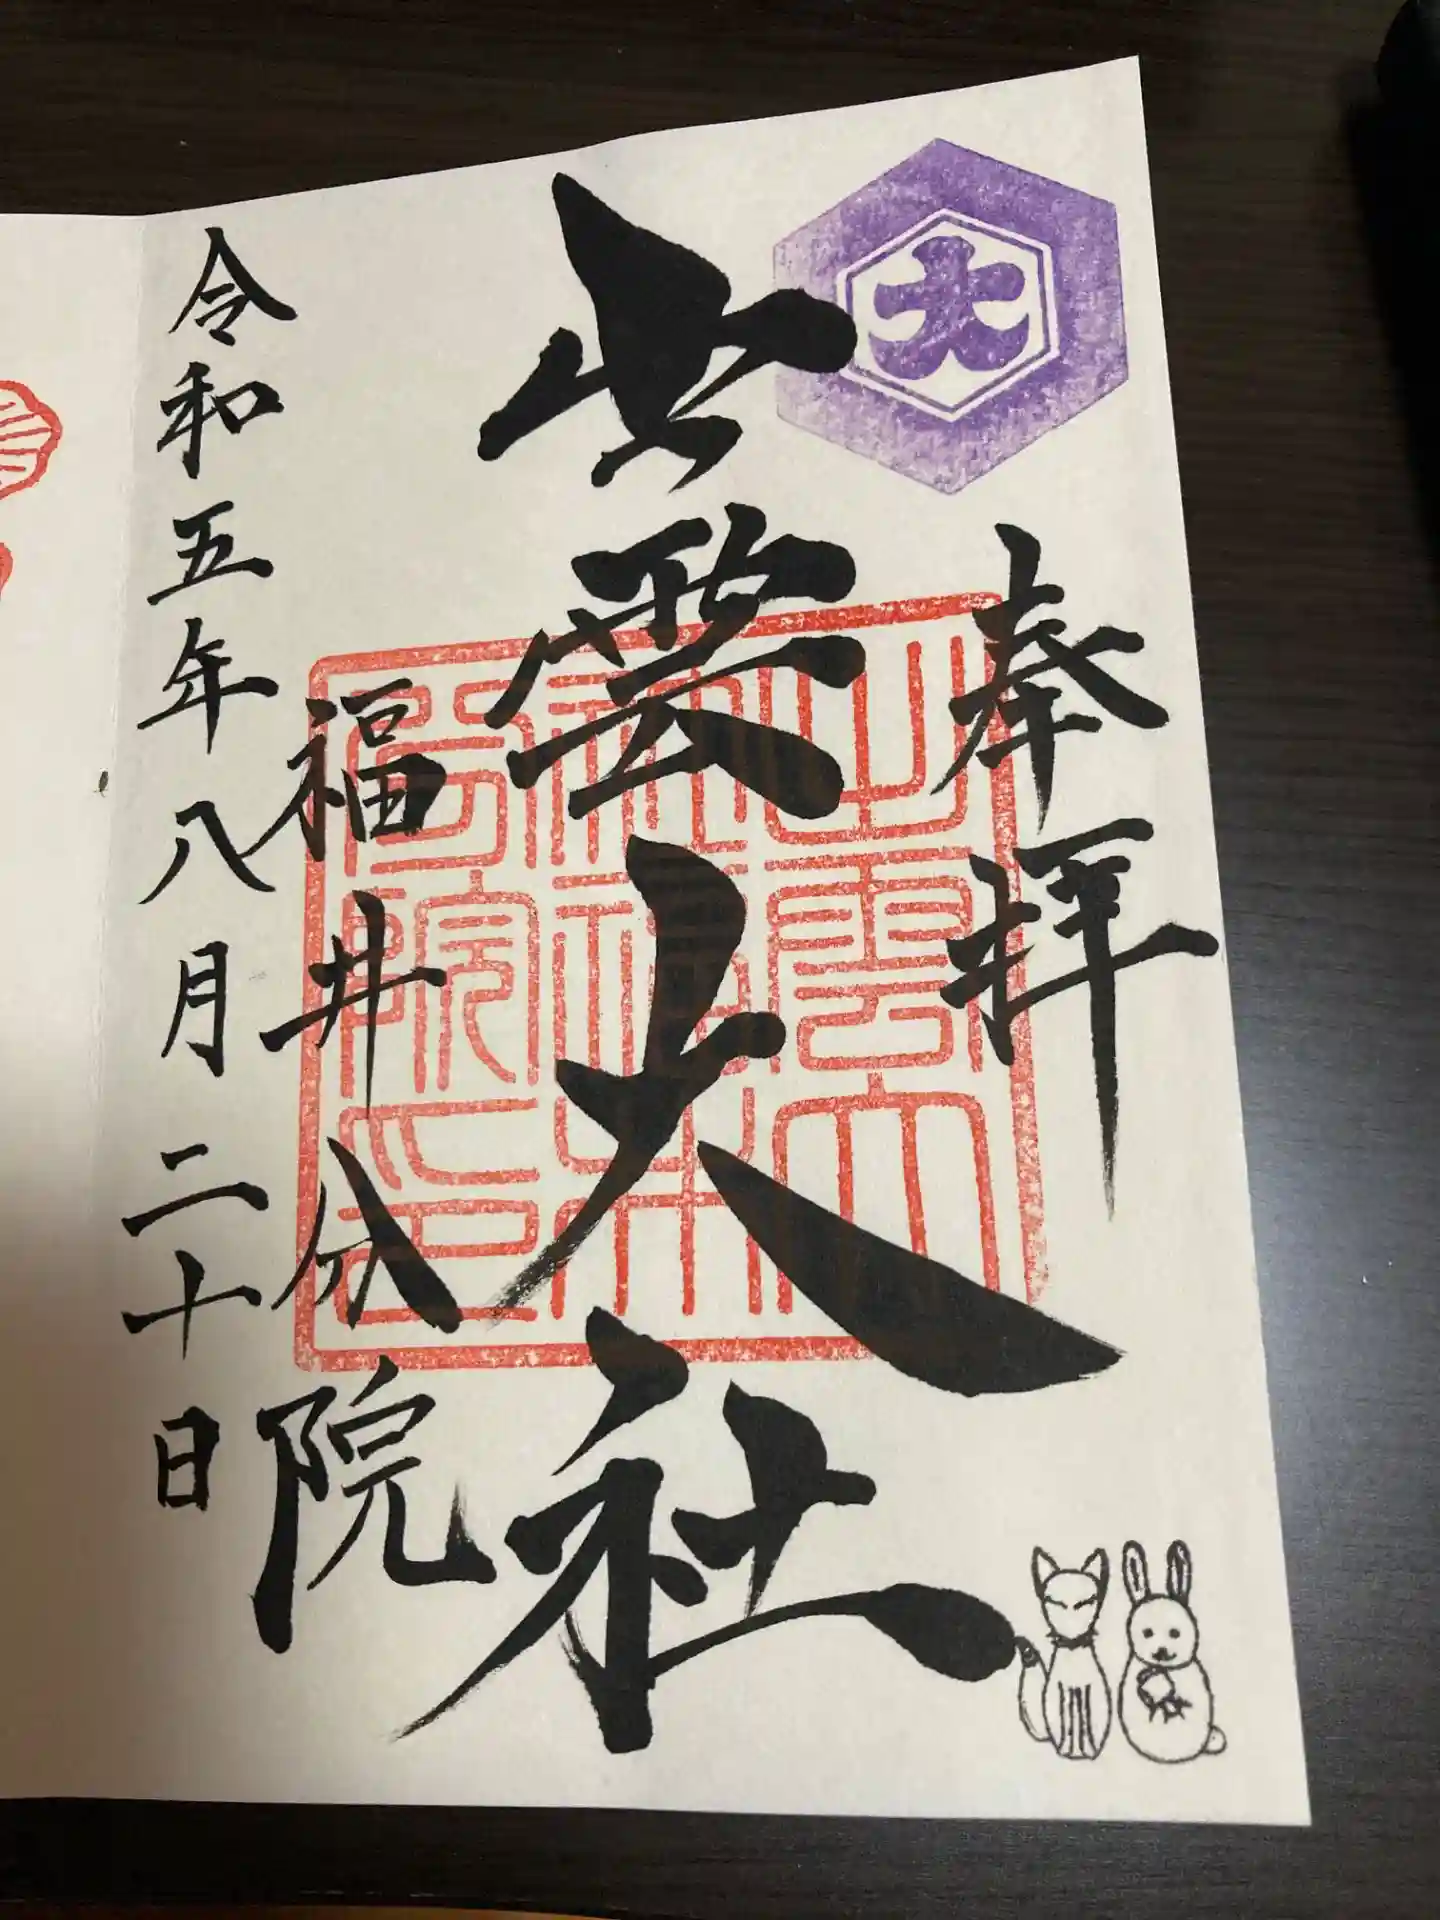 大
奉拝
出雲大社
出雲大社福井分院印
福井分院
令和五年八月二十日